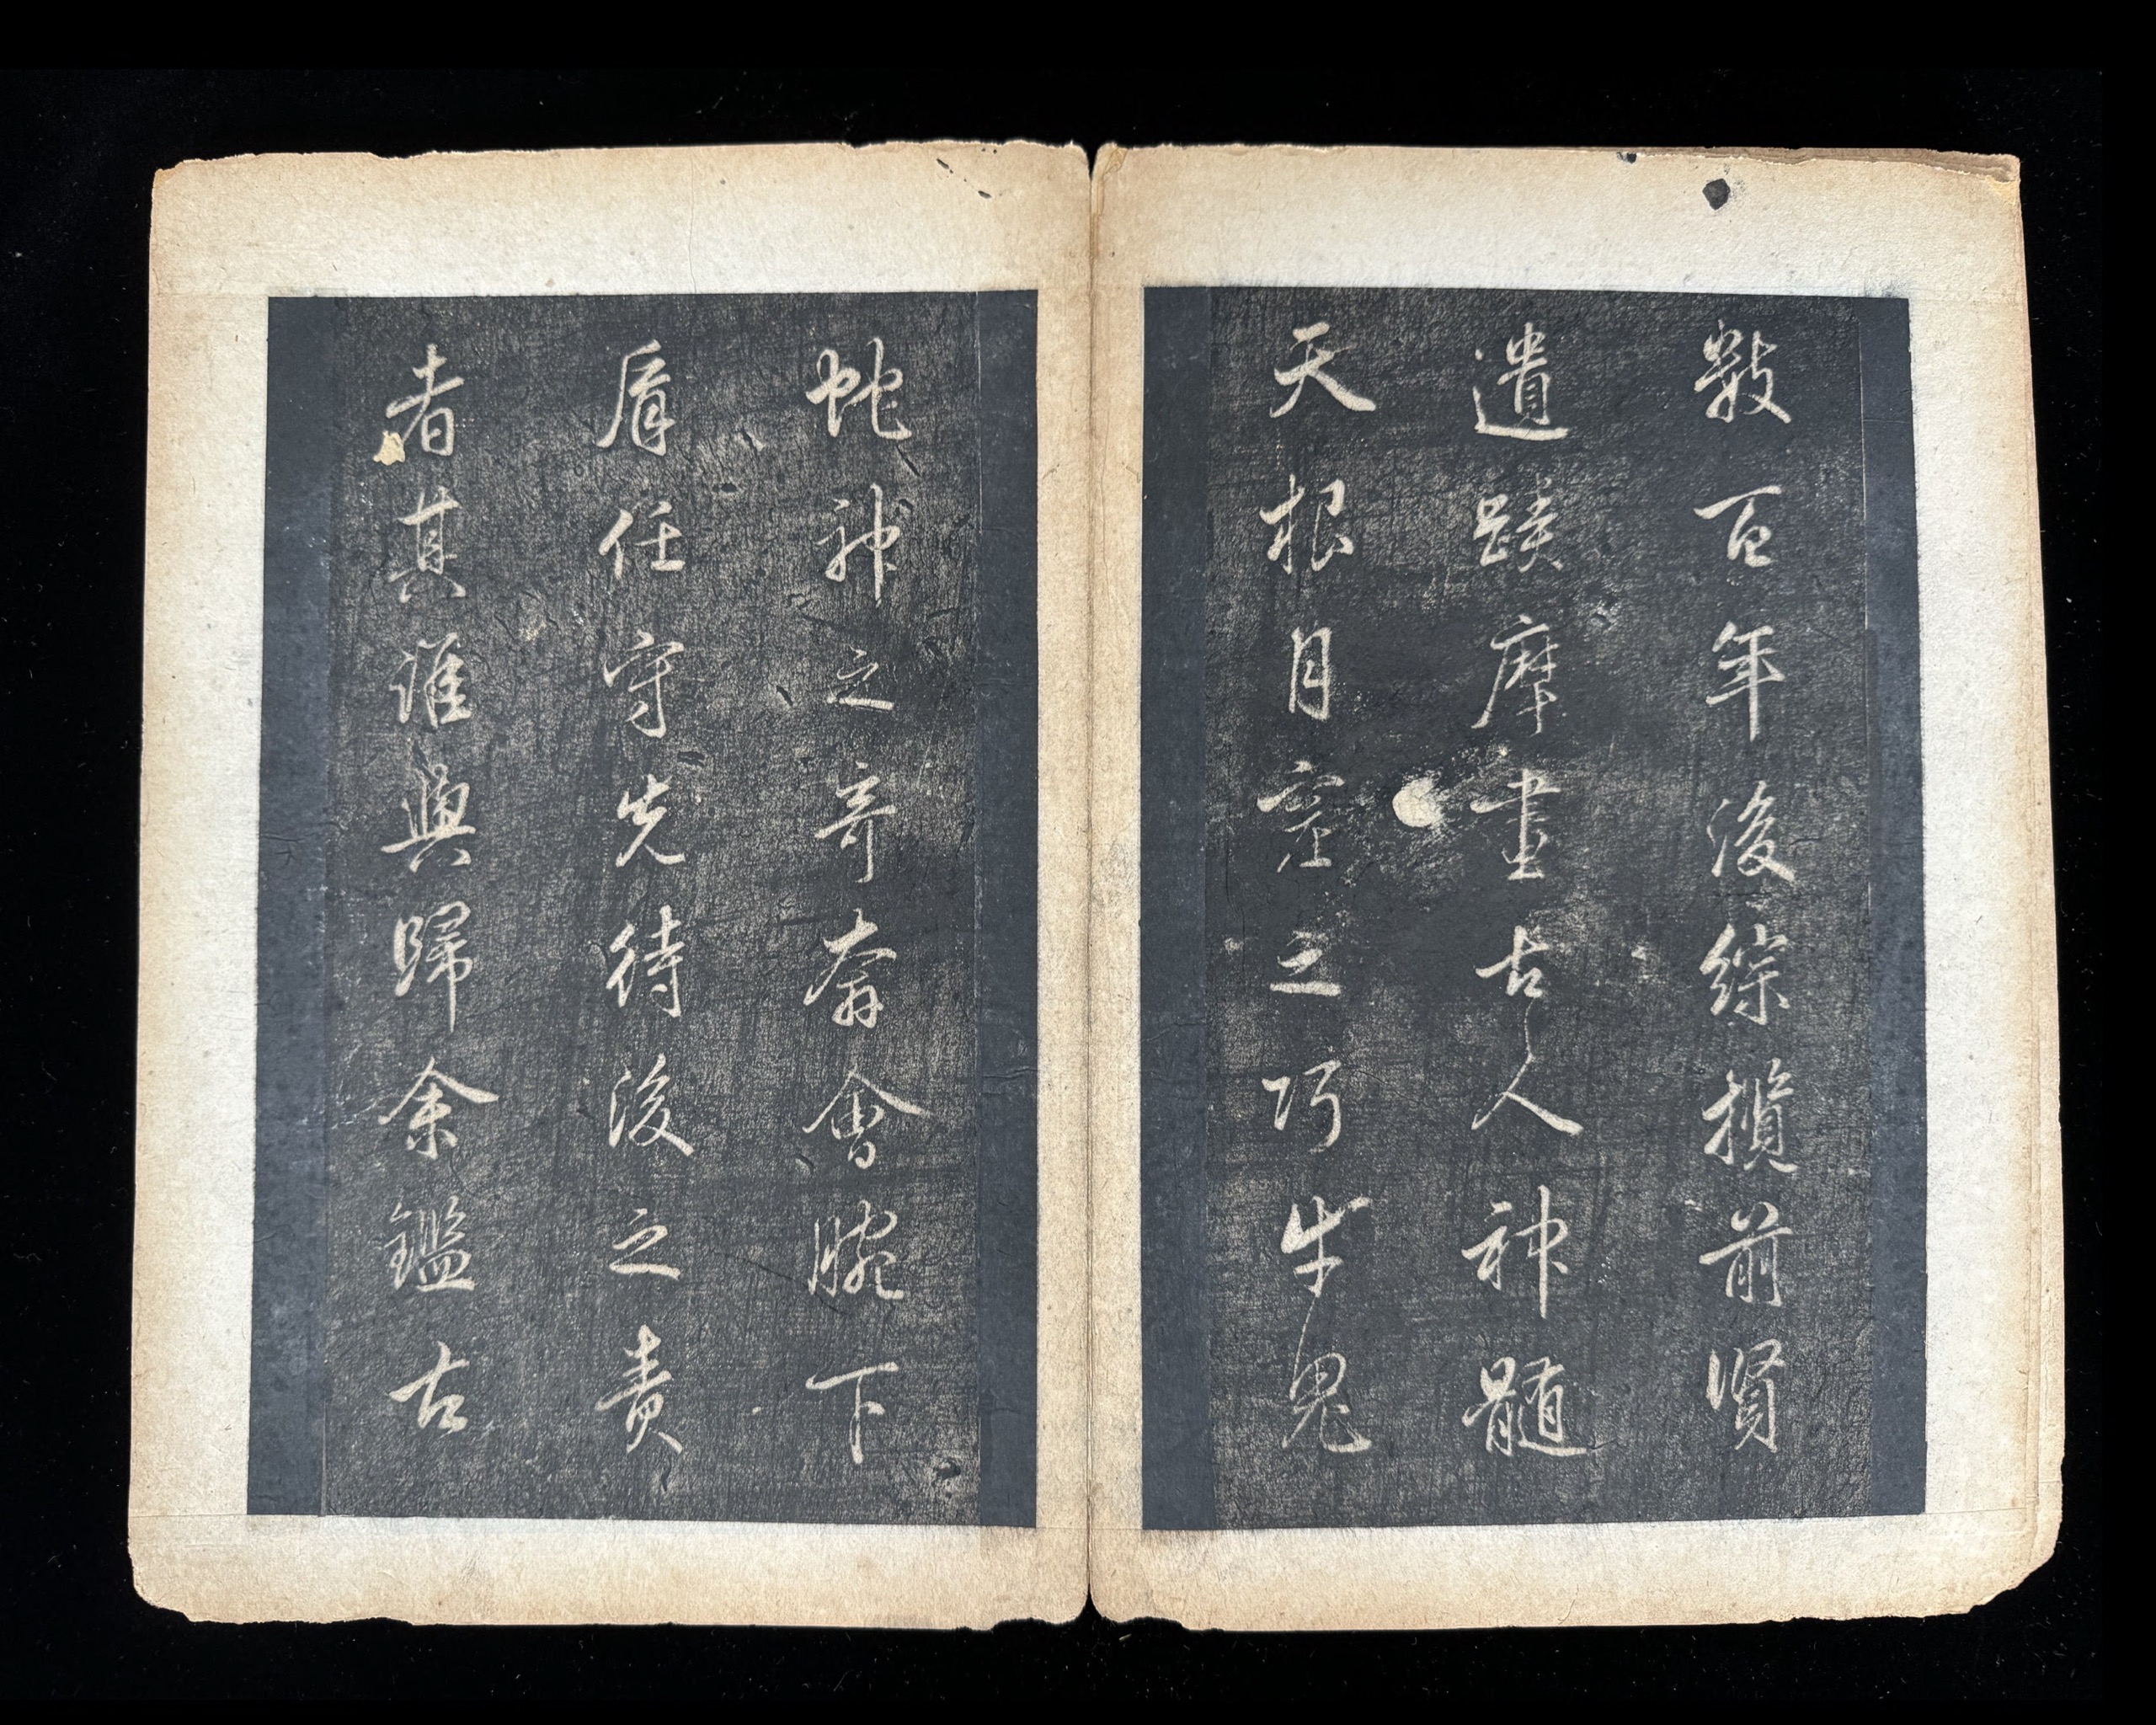 數百年後綜攬前賢
遺蹟摩畫古人神髓
天根月窟之巧牛鬼
蛇神之奇奔會腕下
肩任守先待後之責
者其誰與歸余鑑古